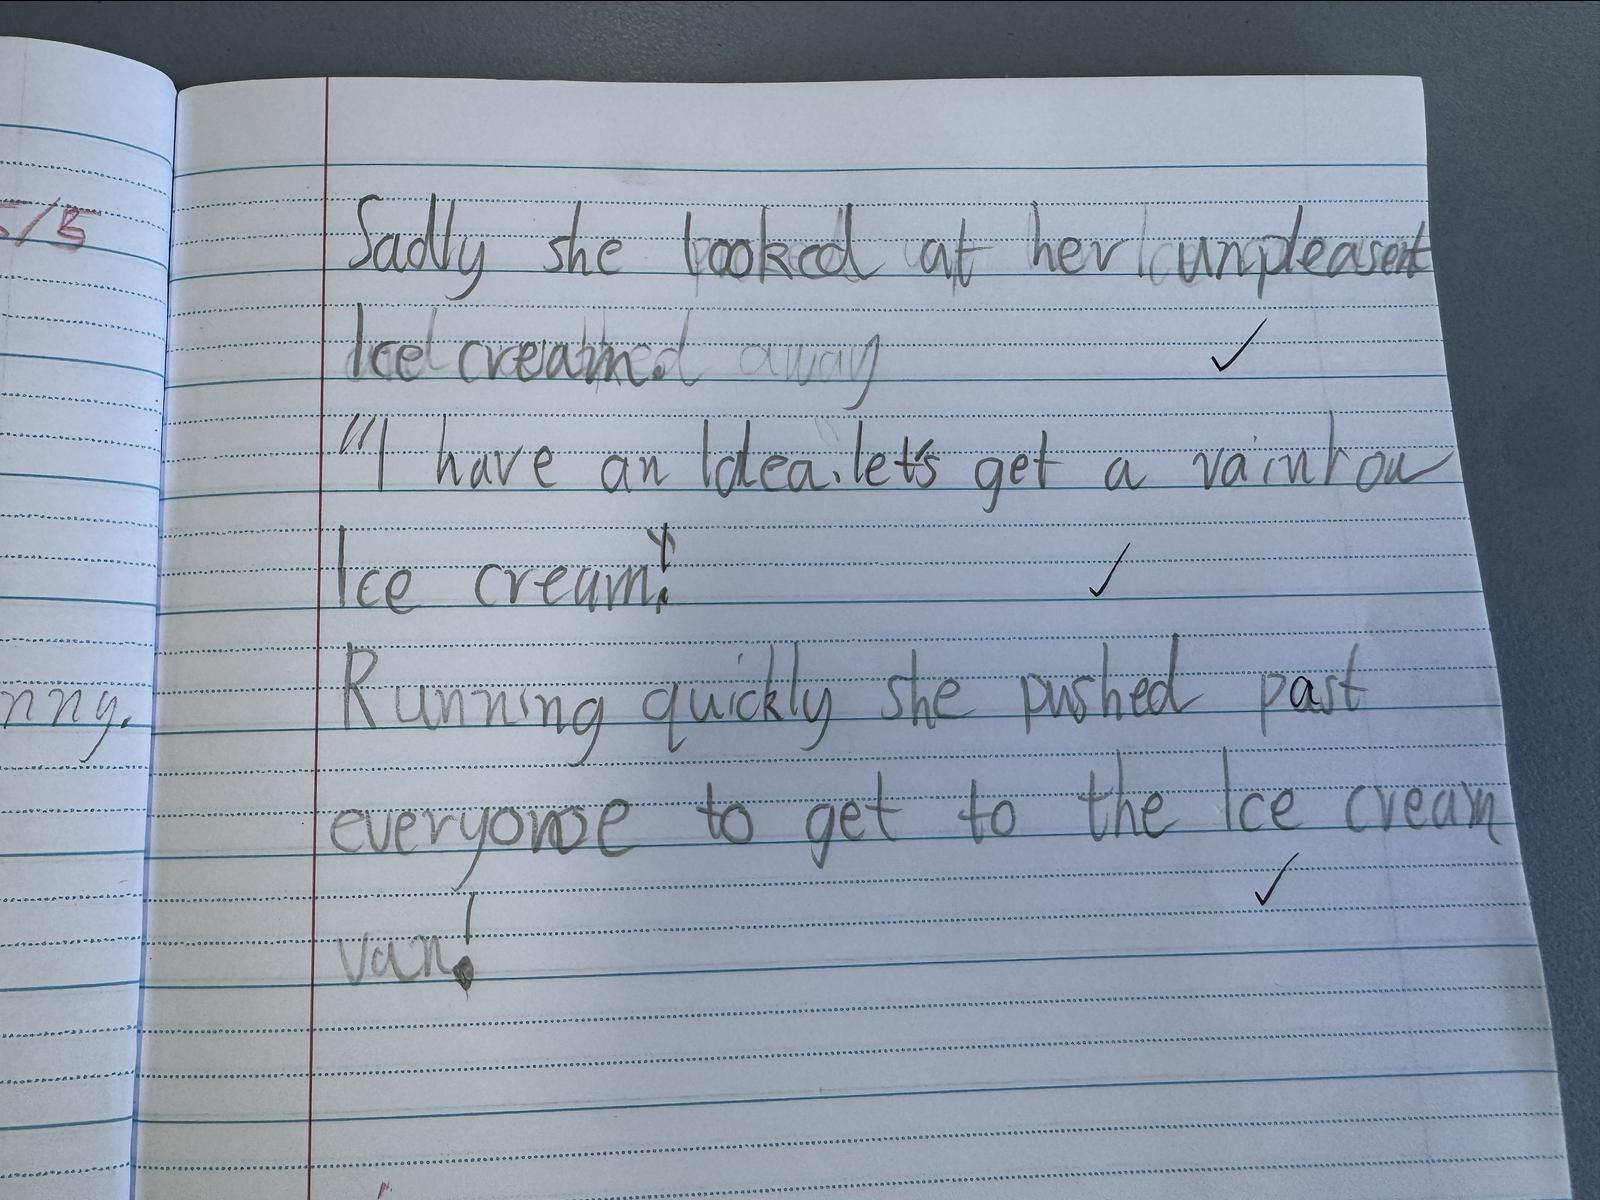 5/5
nny.
Sadly she looked at her unpleasent
Ice cream.
"I have an Idea. let's get a rainbow
Ice cream!"
Running quickly she pushed past
everyone to get to the Ice cream
van!